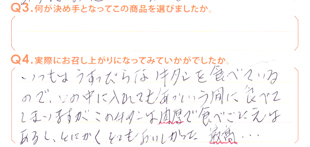 Q3.何が決め手となってこの商品を選びましたか。
Q4.実際にお召し上がりになってみていかがでしたか。
いつもはうすっぺらな牛タンを食べている
ので、口の中に入れてもあっという間に食べて
しまいますが、この牛タンは肉厚で食べごたえは
あるし、とにかくとてもおいしかった 最高・・・